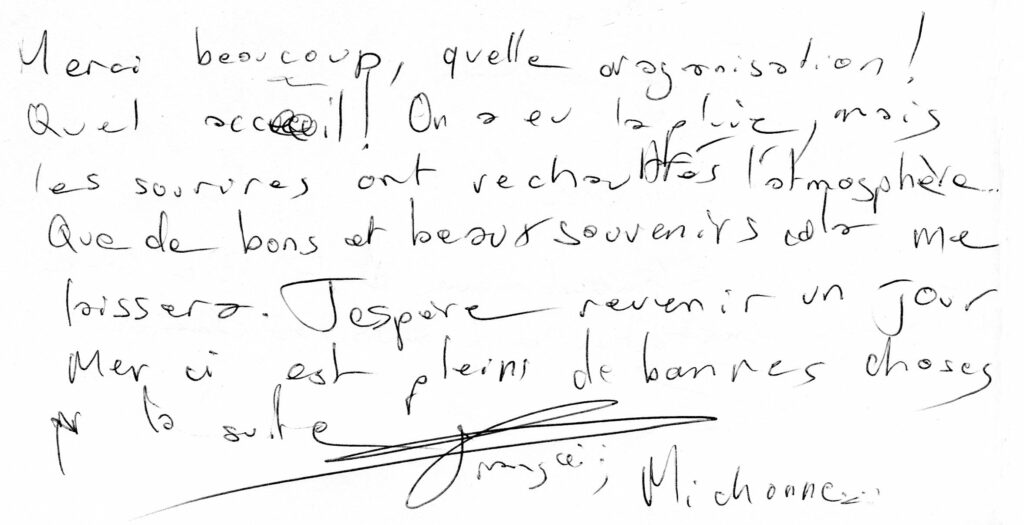 Merci beaucoup, quelle oragonisation!
Quel accueil! On a eu la pluie, mais
les sourires ont rechauffés l'atmosphère..
Que de bons et beaux souvenirs cela me
laissera. J'espère revenir un jour
Merci est pleins de bonnes choses
pr la suite
François Michonne